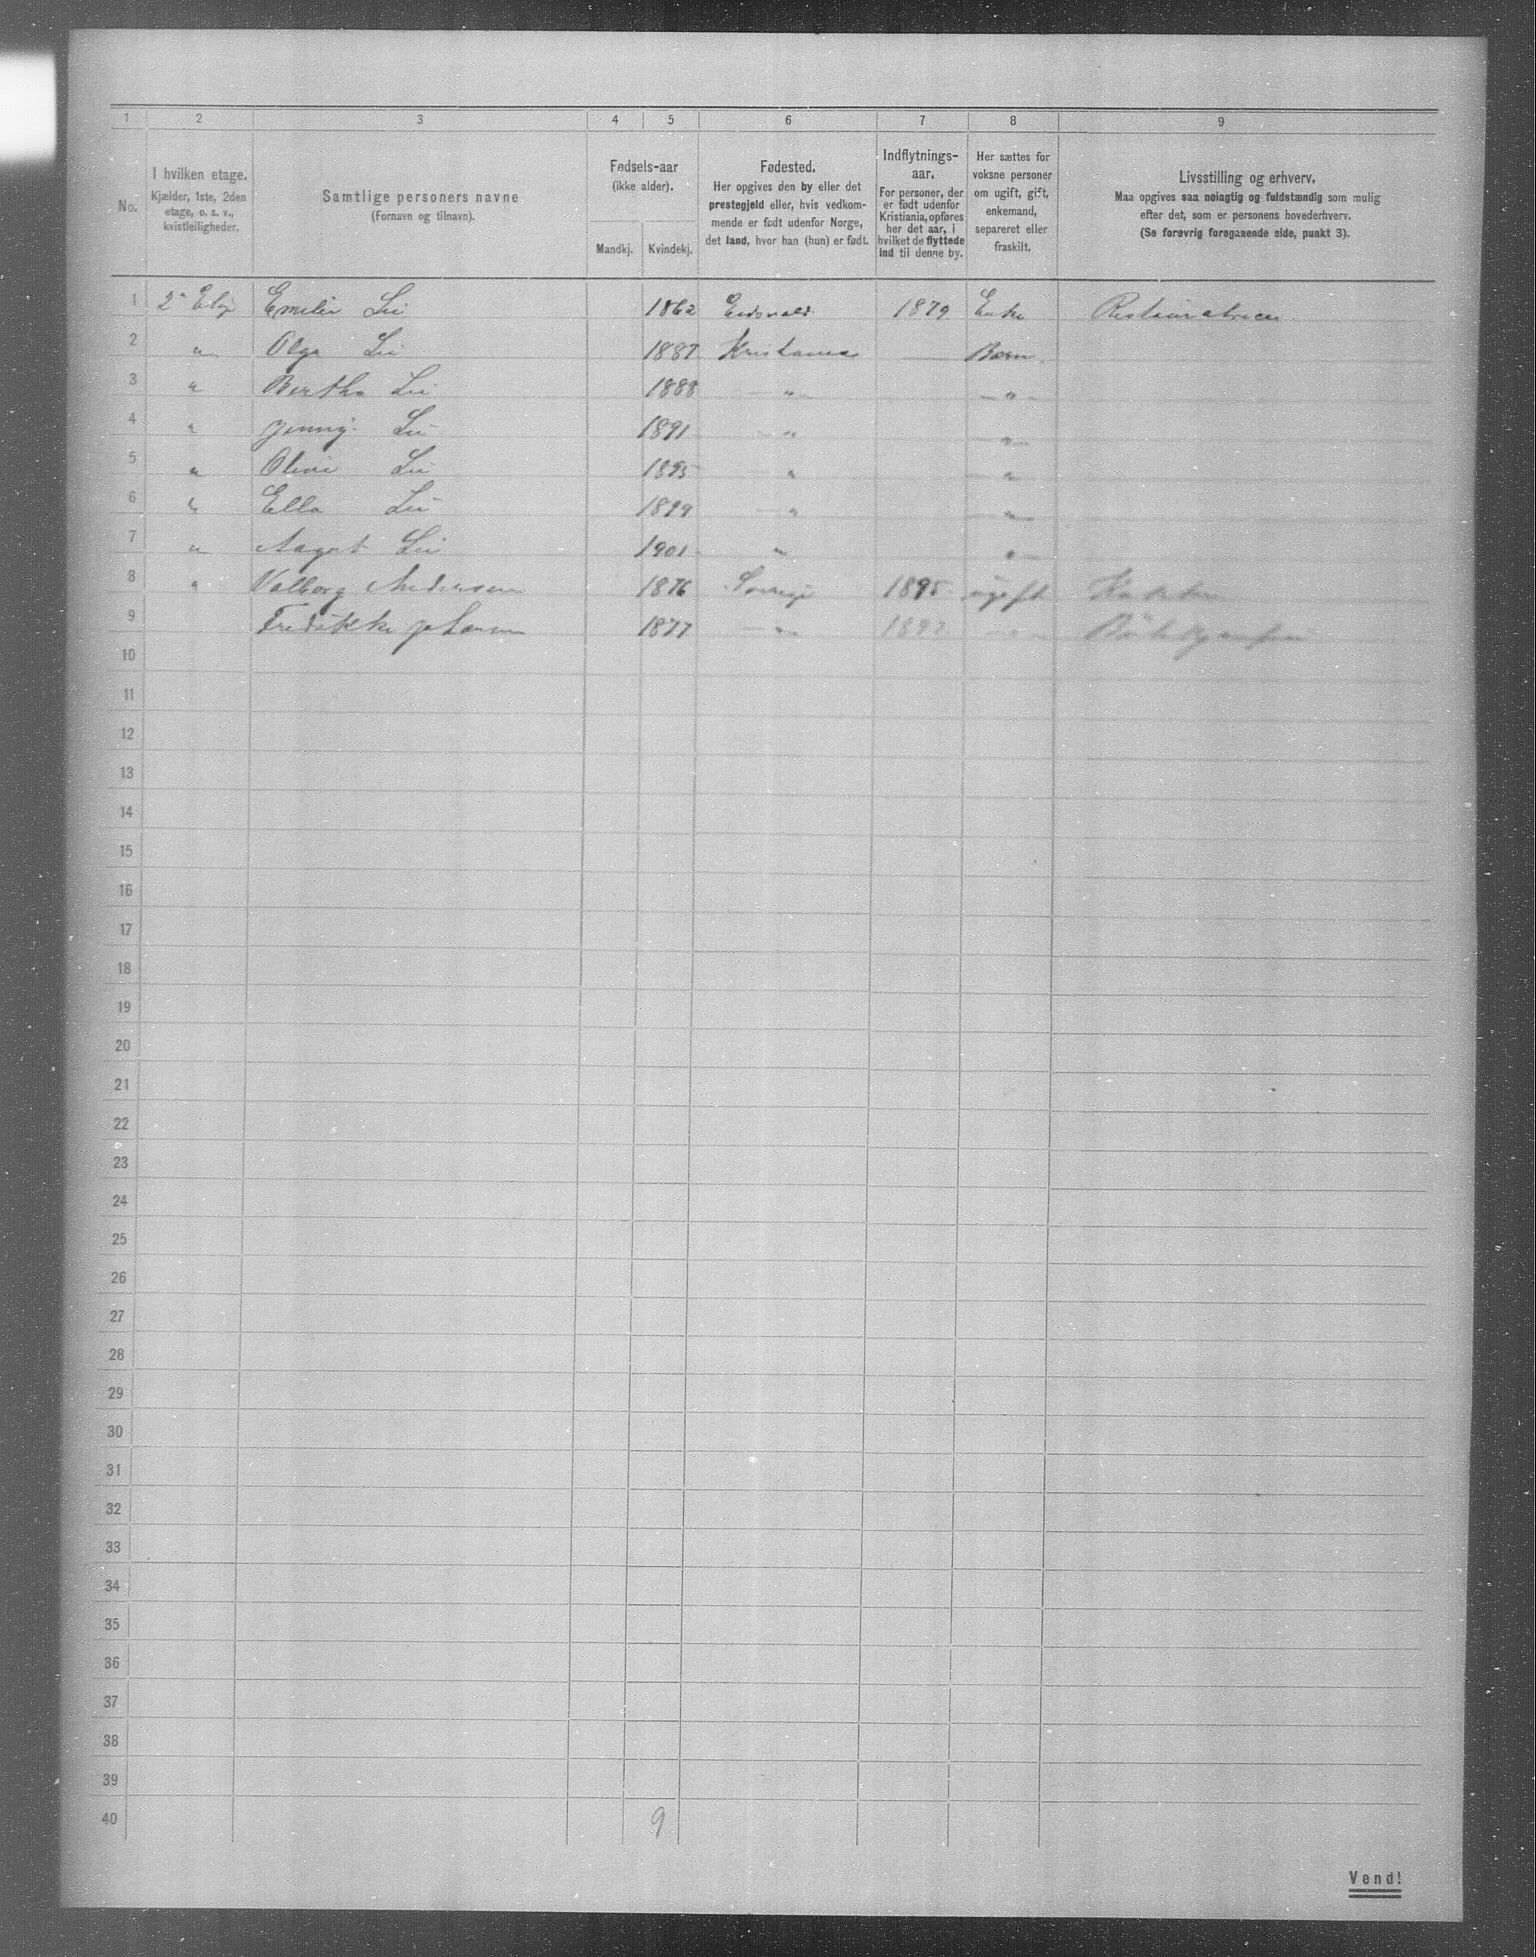 1 2 3 4 5 6 7 8 9
No.
I hvilken etage.
Kjælder, 1ste, 2den
etage, o. s. v.,
kvistleiligheder.
Samtlige personers navne
(Fornavn og tilnavn).
Fødsels-aar
(ikke alder).
Mandkj. Kvindekj.
Fødested.
Her opgives den by eller det
prestegjeld eller, hvis vedkom-
mende er født udenfor Norge,
det land, hvor han (hun) er født.
Indflytnings-
aar.
For personer, der
er født udenfor
Kristiania, opføres
her det aar, i
hvilket de flyttede
ind til denne by.
Her sættes for
voksne personer
om ugift, gift,
enkemand,
separeret eller
fraskilt.
Livsstilling og erhverv.
Maa opgives saa nøiagtig og fuldstændig som mulig
efter det, som er personens hovederhverv.
(Se forøvrig foregaaende side, punkt 3).
1 2 Emilie Lie 1862 Eidsvold 1879 Enke
2 " Olga Lie 1887 Kristiania Barn
3 " Bertha Lie 1888 " "
4 " Jenny Lie 1891 " "
5 " Lie 1895 " "
6 " Ella Lie 1899 " "
7 " Aagot Lie 1901 " "
8 " Valborg Andersen 1876 Sverige 1895 ugift
9 Fredrikke Johansen 1877 " 1897 "
10
11
12
13
14
15
16
17
18
19
20
21
22
23
24
25
26
27
28
29
30
31
32
33
34
35
36
37
38
39
40 9
Vend!